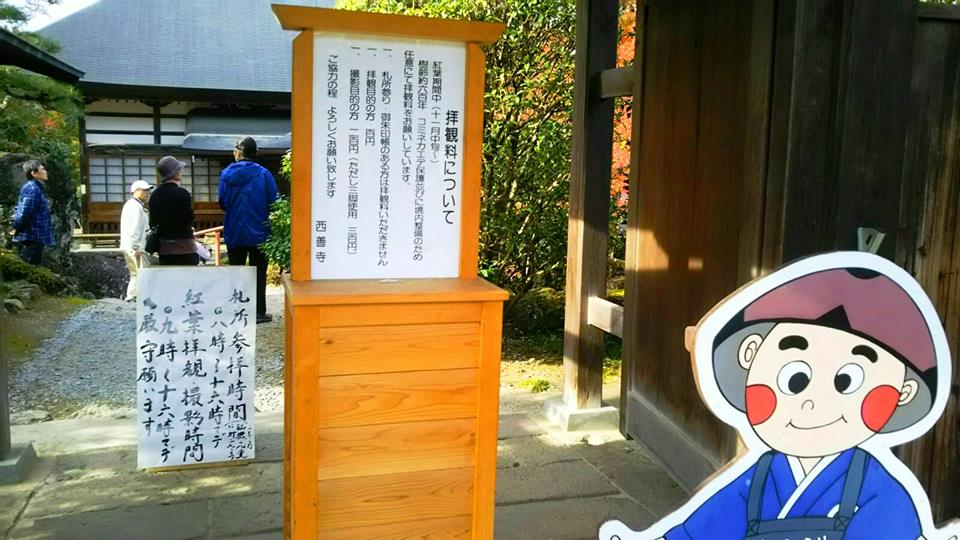 拝観料について
紅葉期間中（十一月中旬～）
樹齢約六百年　コミネカエデ保護並びに境内整備のため
任意にて拝観料をお願いしています。
一、札所参り・御朱印帳のある方は拝観料いただきません
一、拝観目的の方　百円
一、撮影目的の方　二百円（ただし三脚使用　三百円）
ご協力の程　よろしくお願い致します
西善寺
札所参拝時間
八時～十六時まで
紅葉拝観・撮影時間
九時～十六時まで
厳守願います